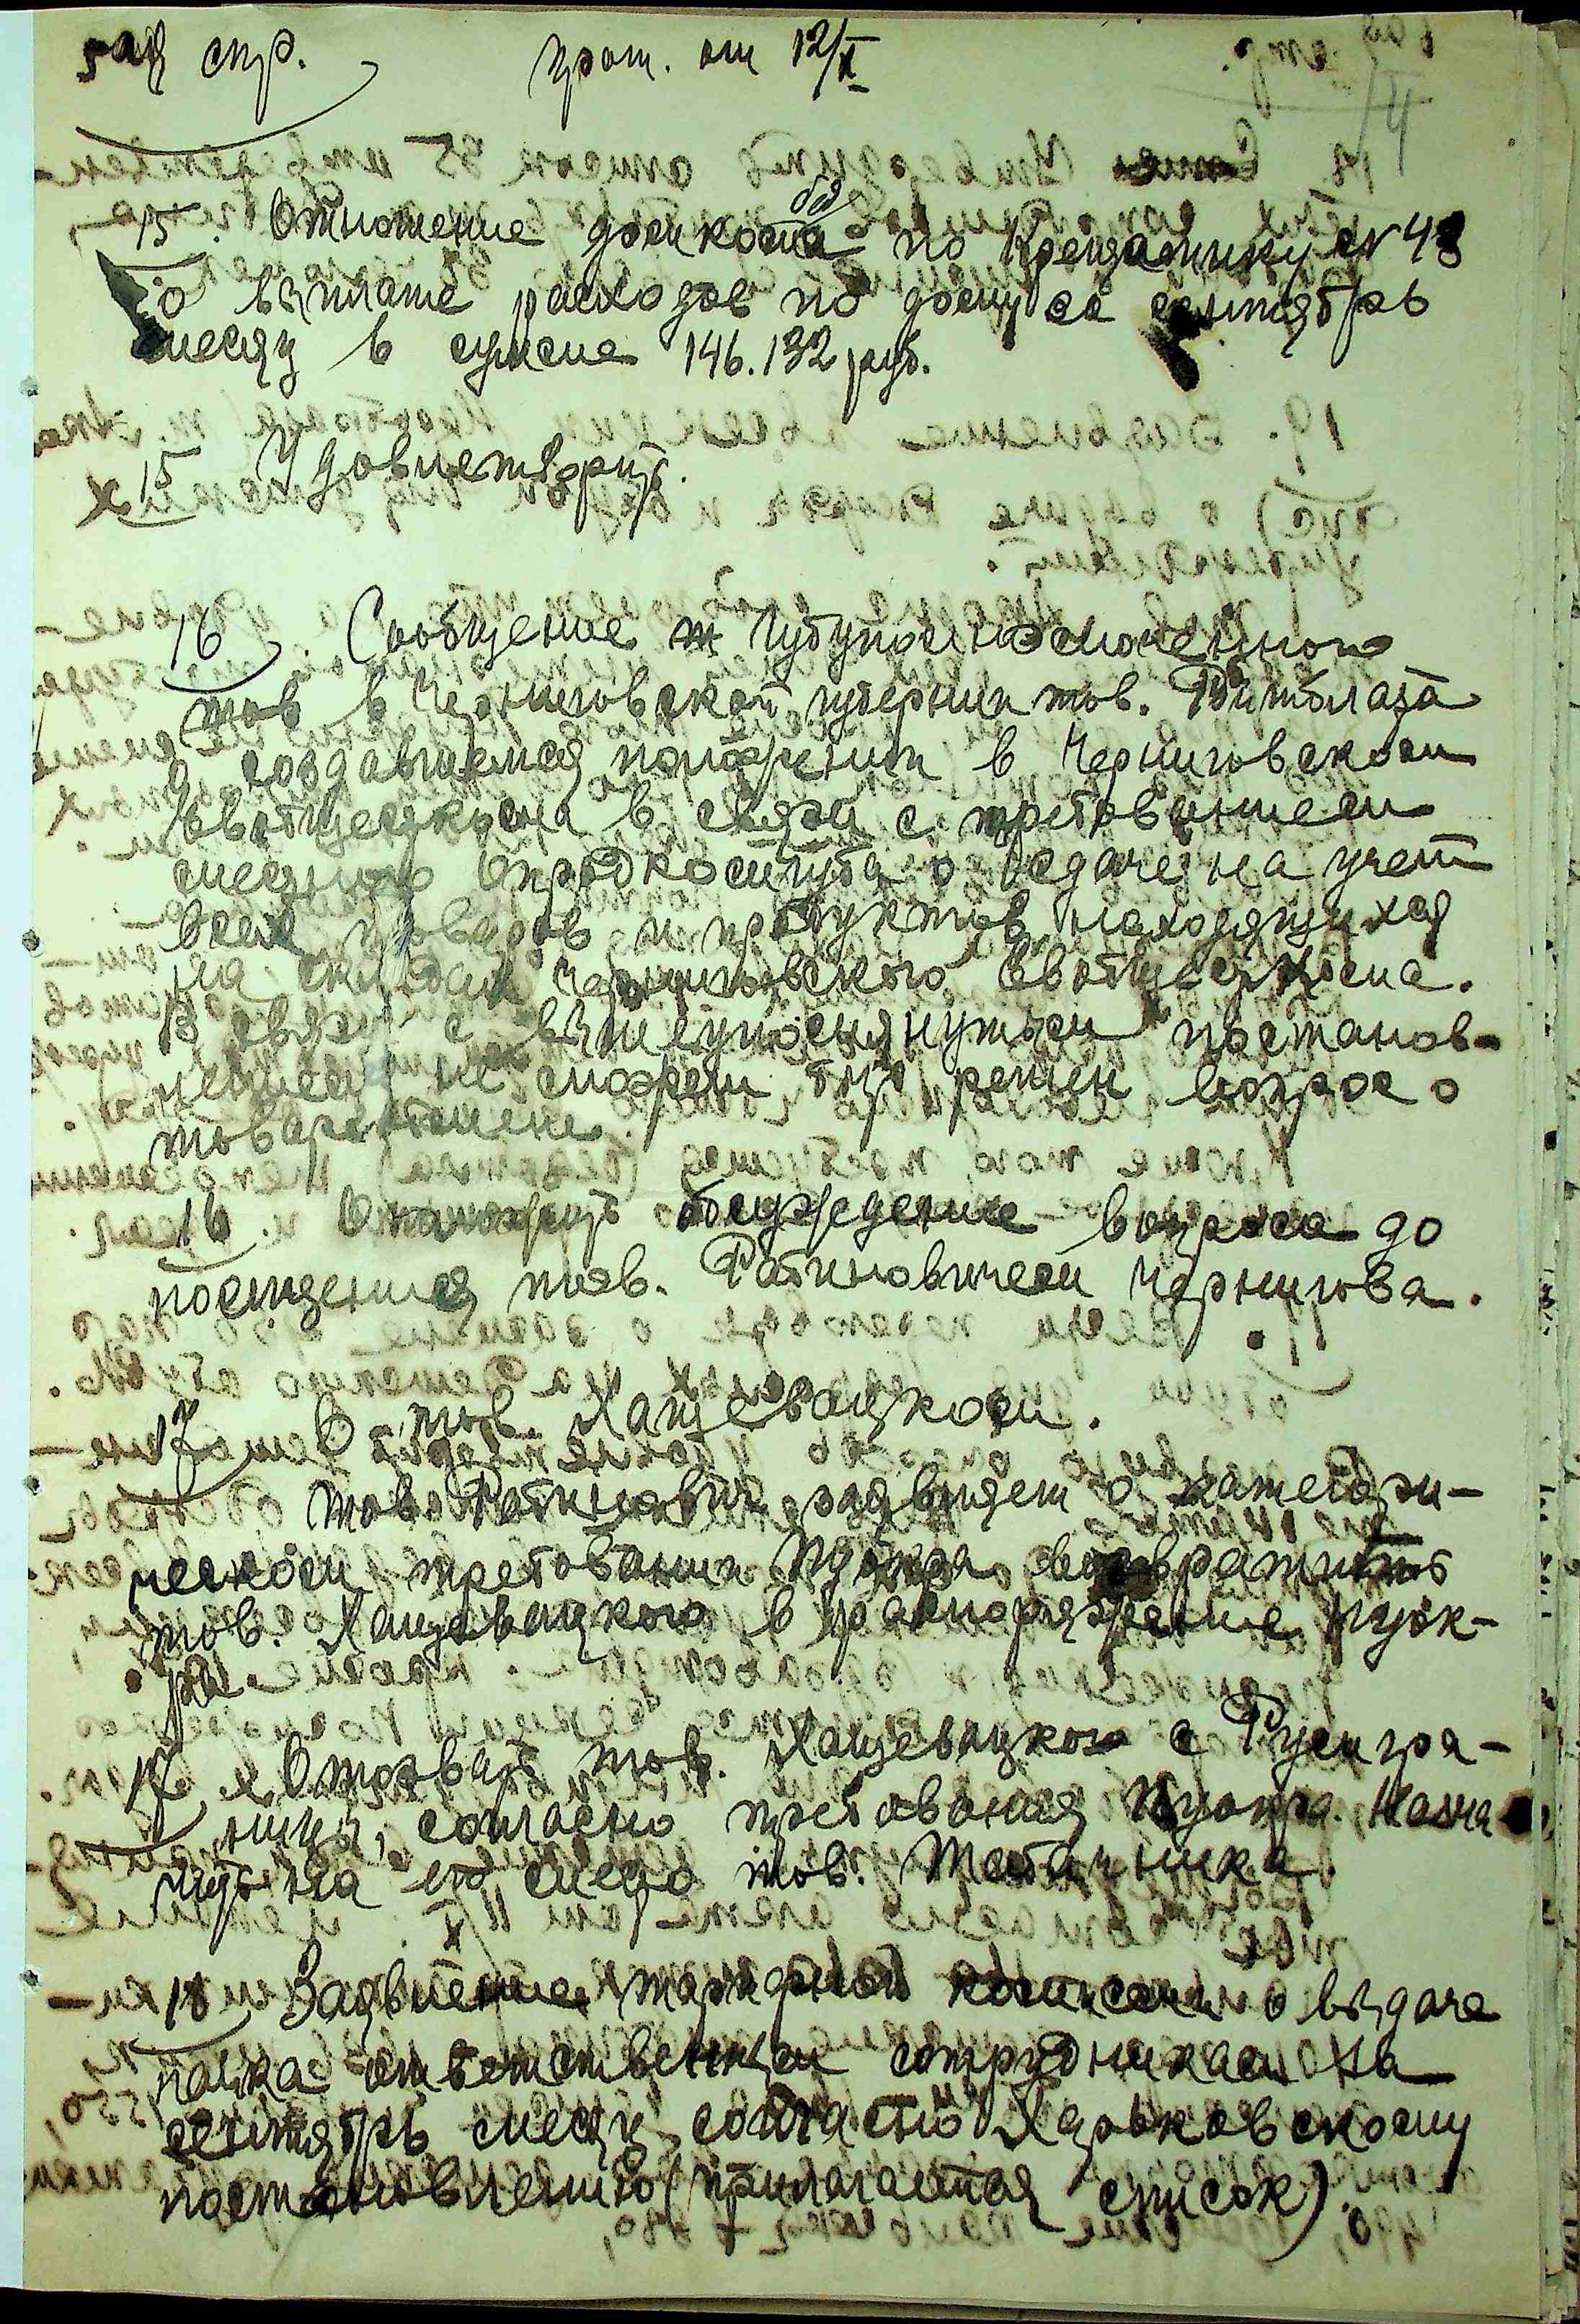 стр. прот. от 12/X
15. Отношение домкома по Крещатику № 48
о выплате расходов по дому за сентябрь
месяц в сумме 146.132 руб.
15 Удовлетворить.
16. Сообщение Губуполномоченного
в Черниговской губернии тов. Ритблата
о создавшемся положении в Черниговском
Евобщесткоме в связи с требованием
местного Опродкомгуба о взятии на учет
всех товаров и продуктов находящихся
на складах Черниговского Евобщесткома.
В связи с вышеупомянутым постанов-
лением не может быть решен вопрос о
16. Отложить обсуждение вопроса до
посещения тов. Рабиновичем Чернигова.
17 О тов. Хащевацком.
Тов. Рабинович заявляет о категори-
ческом требовании возвратить
тов. Хащевацкого в распоряжение
17. Отозвать тов. Хащевацкого с Румгра-
ницы, согласно требования Назна-
чить на его место тов. Табачника.
18 Заявление тарифной комиссии о выдаче
пайка ответственным сотрудникам за
сентябрь месяц согласно Харьковскому
постановлению (прилагается список).